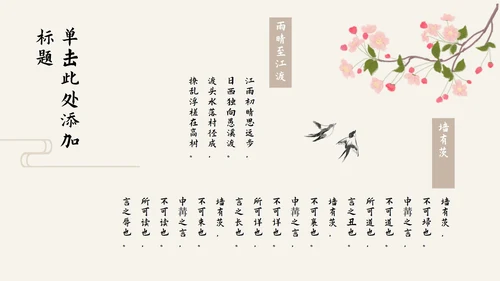 单击此处添加
标题
雨晴至江渡
江雨初晴思远步，
日西独向愚溪渡。
渡头水落村径成，
撩乱浮槎在高树。
墙有茨
墙有茨，
不可埽也。
中冓之言，
不可道也。
所可道也，
言之丑也。
墙有茨，
不可襄也。
中冓之言，
不可详也。
所可详也，
言之长也。
墙有茨，
不可束也。
中冓之言，
不可读也。
所可读也，
言之辱也。